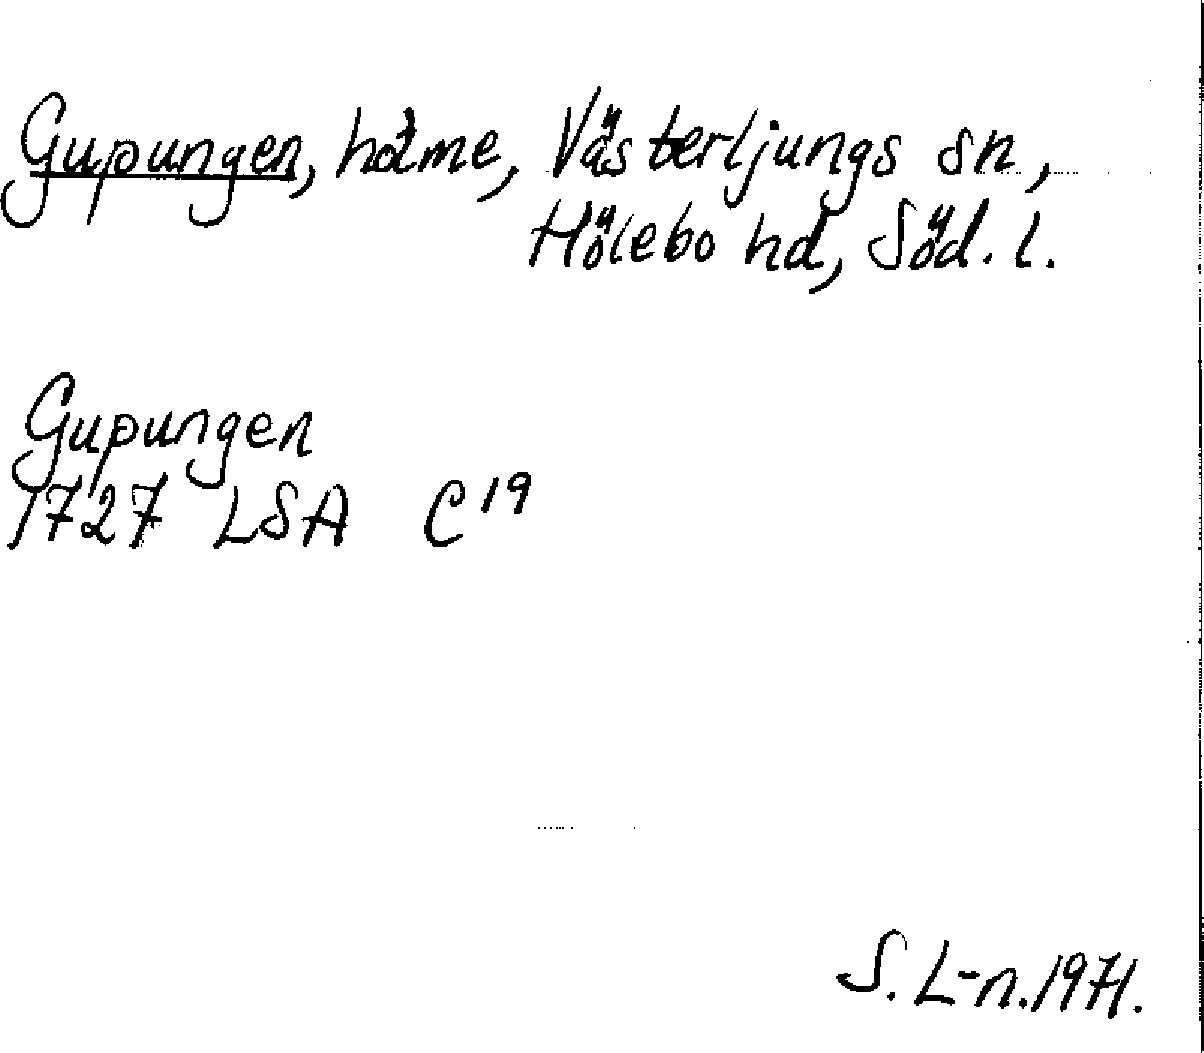 Gupungen, holme, Västerljungs sn,
Hölebo hd, Söd. l.
Gupungen
1727 LSA C19
S. L-n. 1971.